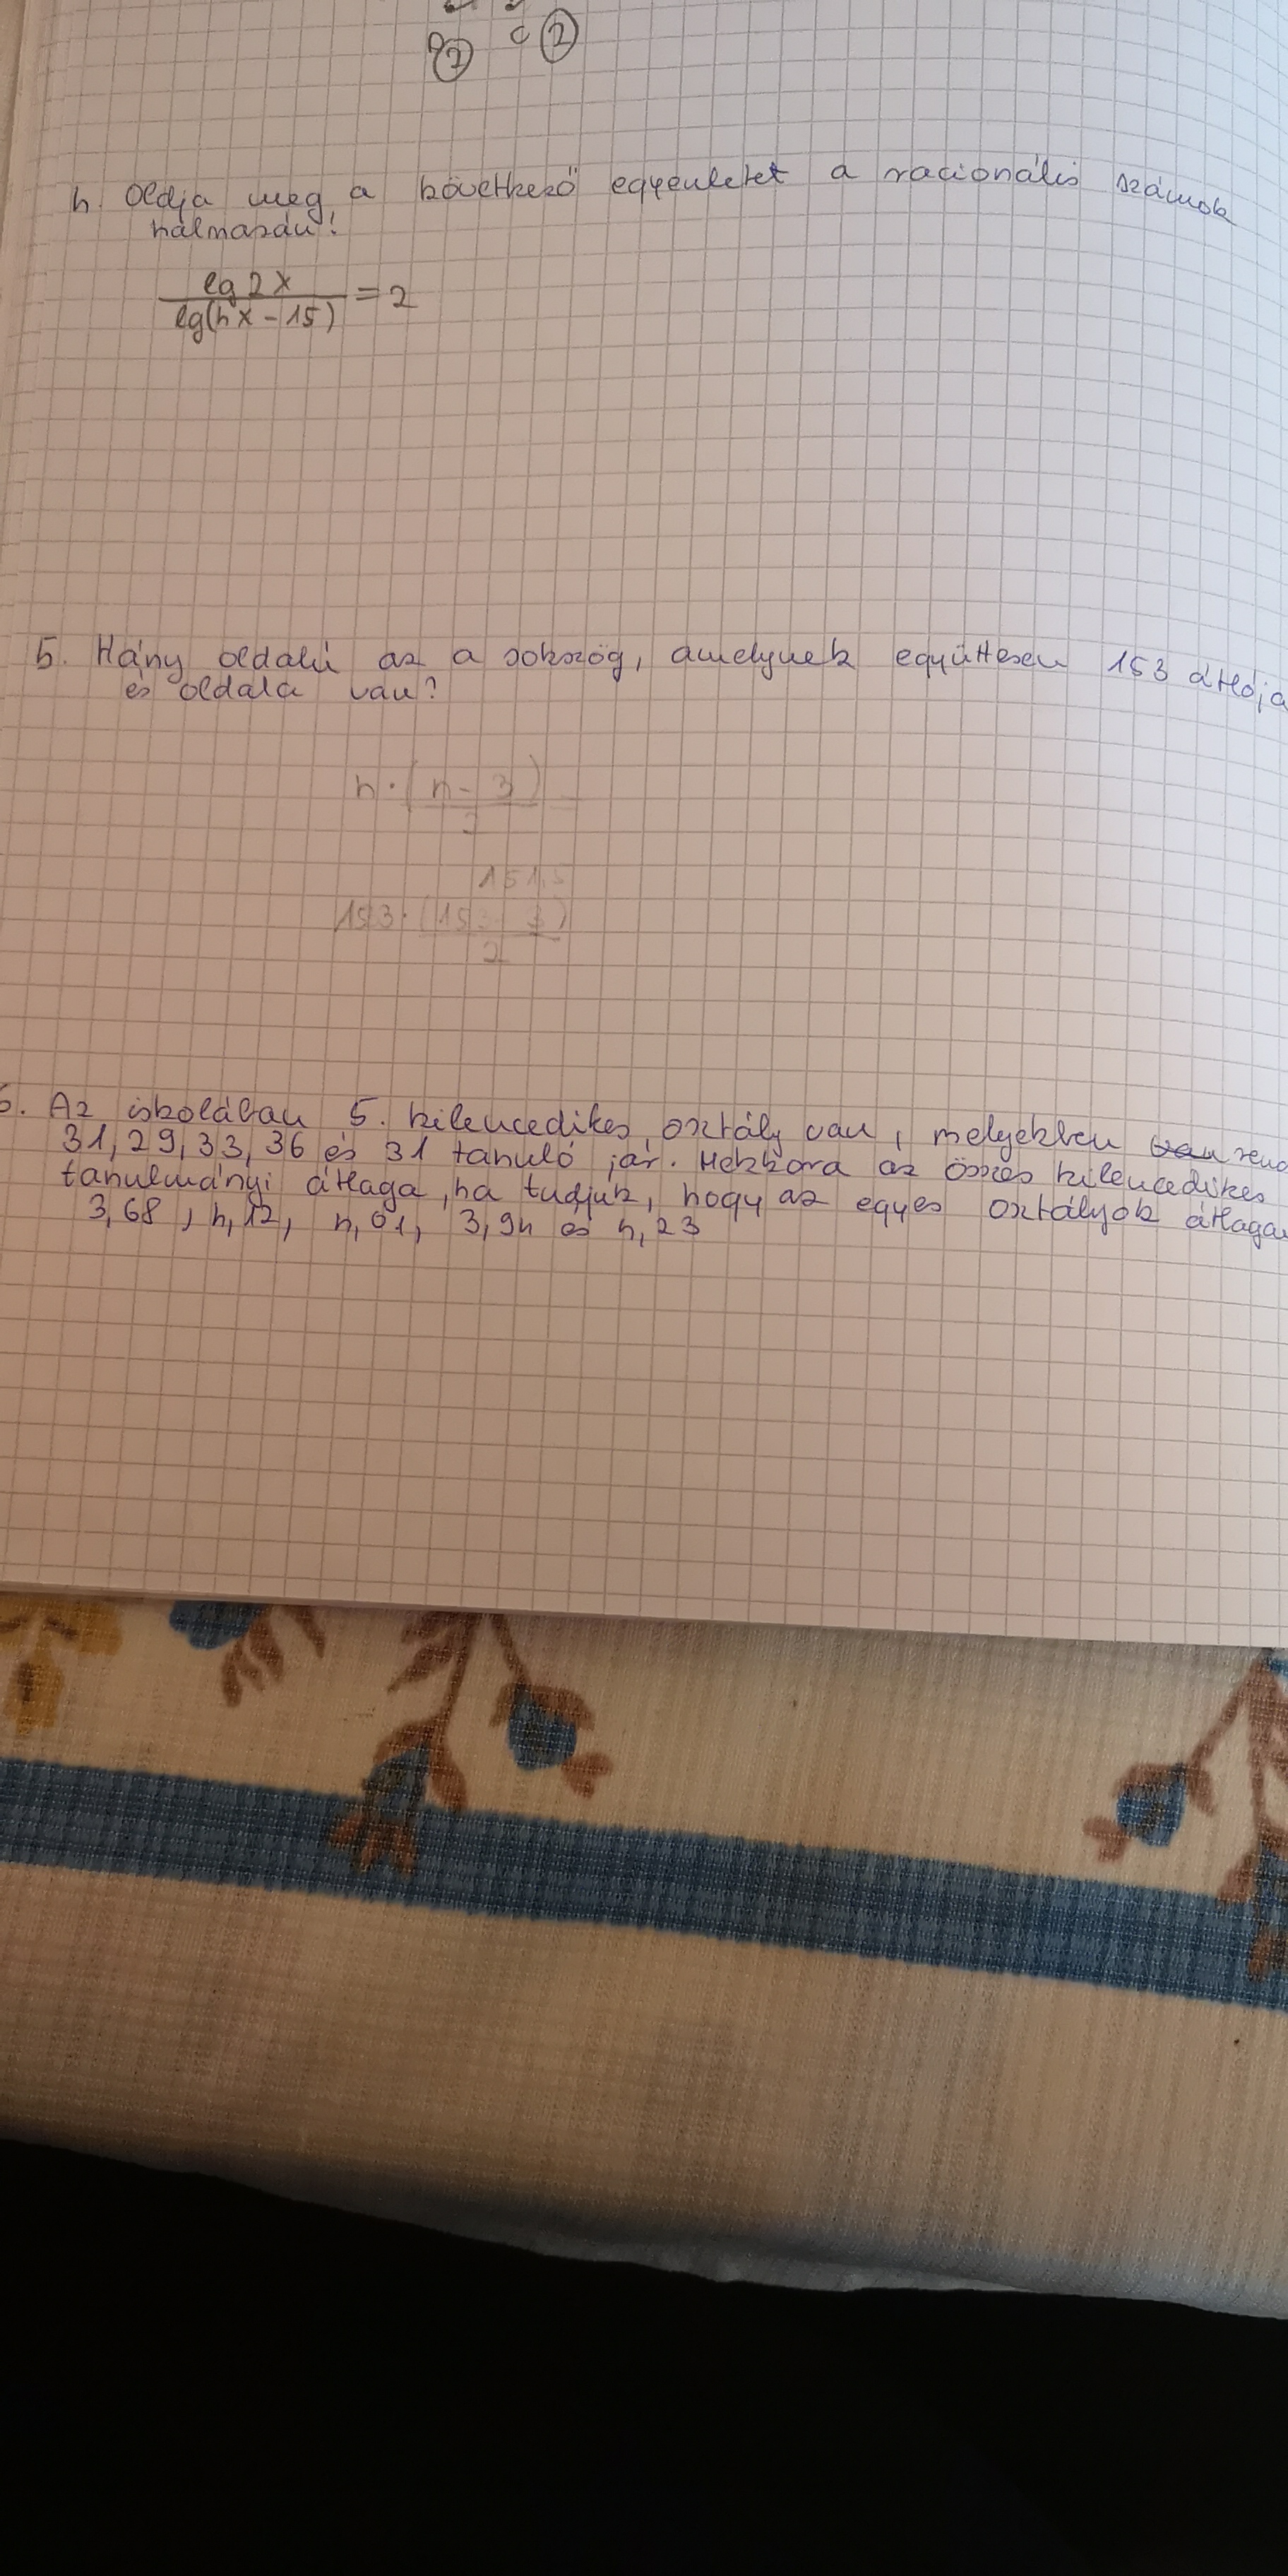 4. Oldja meg a következő egyenletet a racionális számok
halmazán!
lg 2x
lg(4x - 15) = 2
5. Hány oldalú az a sokszög, amelynek együttesen 153 átlója
és oldala van?
n · (n - 3)
2
151,5
153 · (153 - 3)
2
6. Az iskolában 5. kilencedikes osztály van, melyekben
31, 29, 33, 36 és 31 tanuló jár. Mekkora az összes kilencedikes
tanulmányi átlaga, ha tudjuk, hogy az egyes osztályok átlaga
3,68, 4,12, 4,01, 3,94 és 4,23